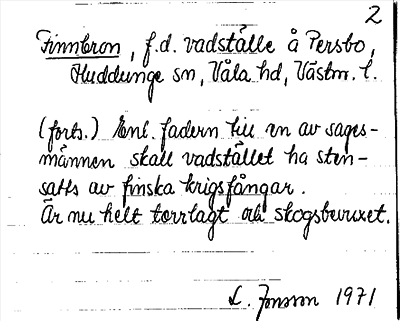 2
Finnbron, f.d. vadställe å Persbo,
Huddunge sn, Våla hd, Västm. l.
(forts.) Enl. fadern till en av sages-
männen skall vadstället ha sten-
satts av finska krigsfångar.
Är nu helt torrlagt och skogsbevuxet.
L. Jonsson 1971